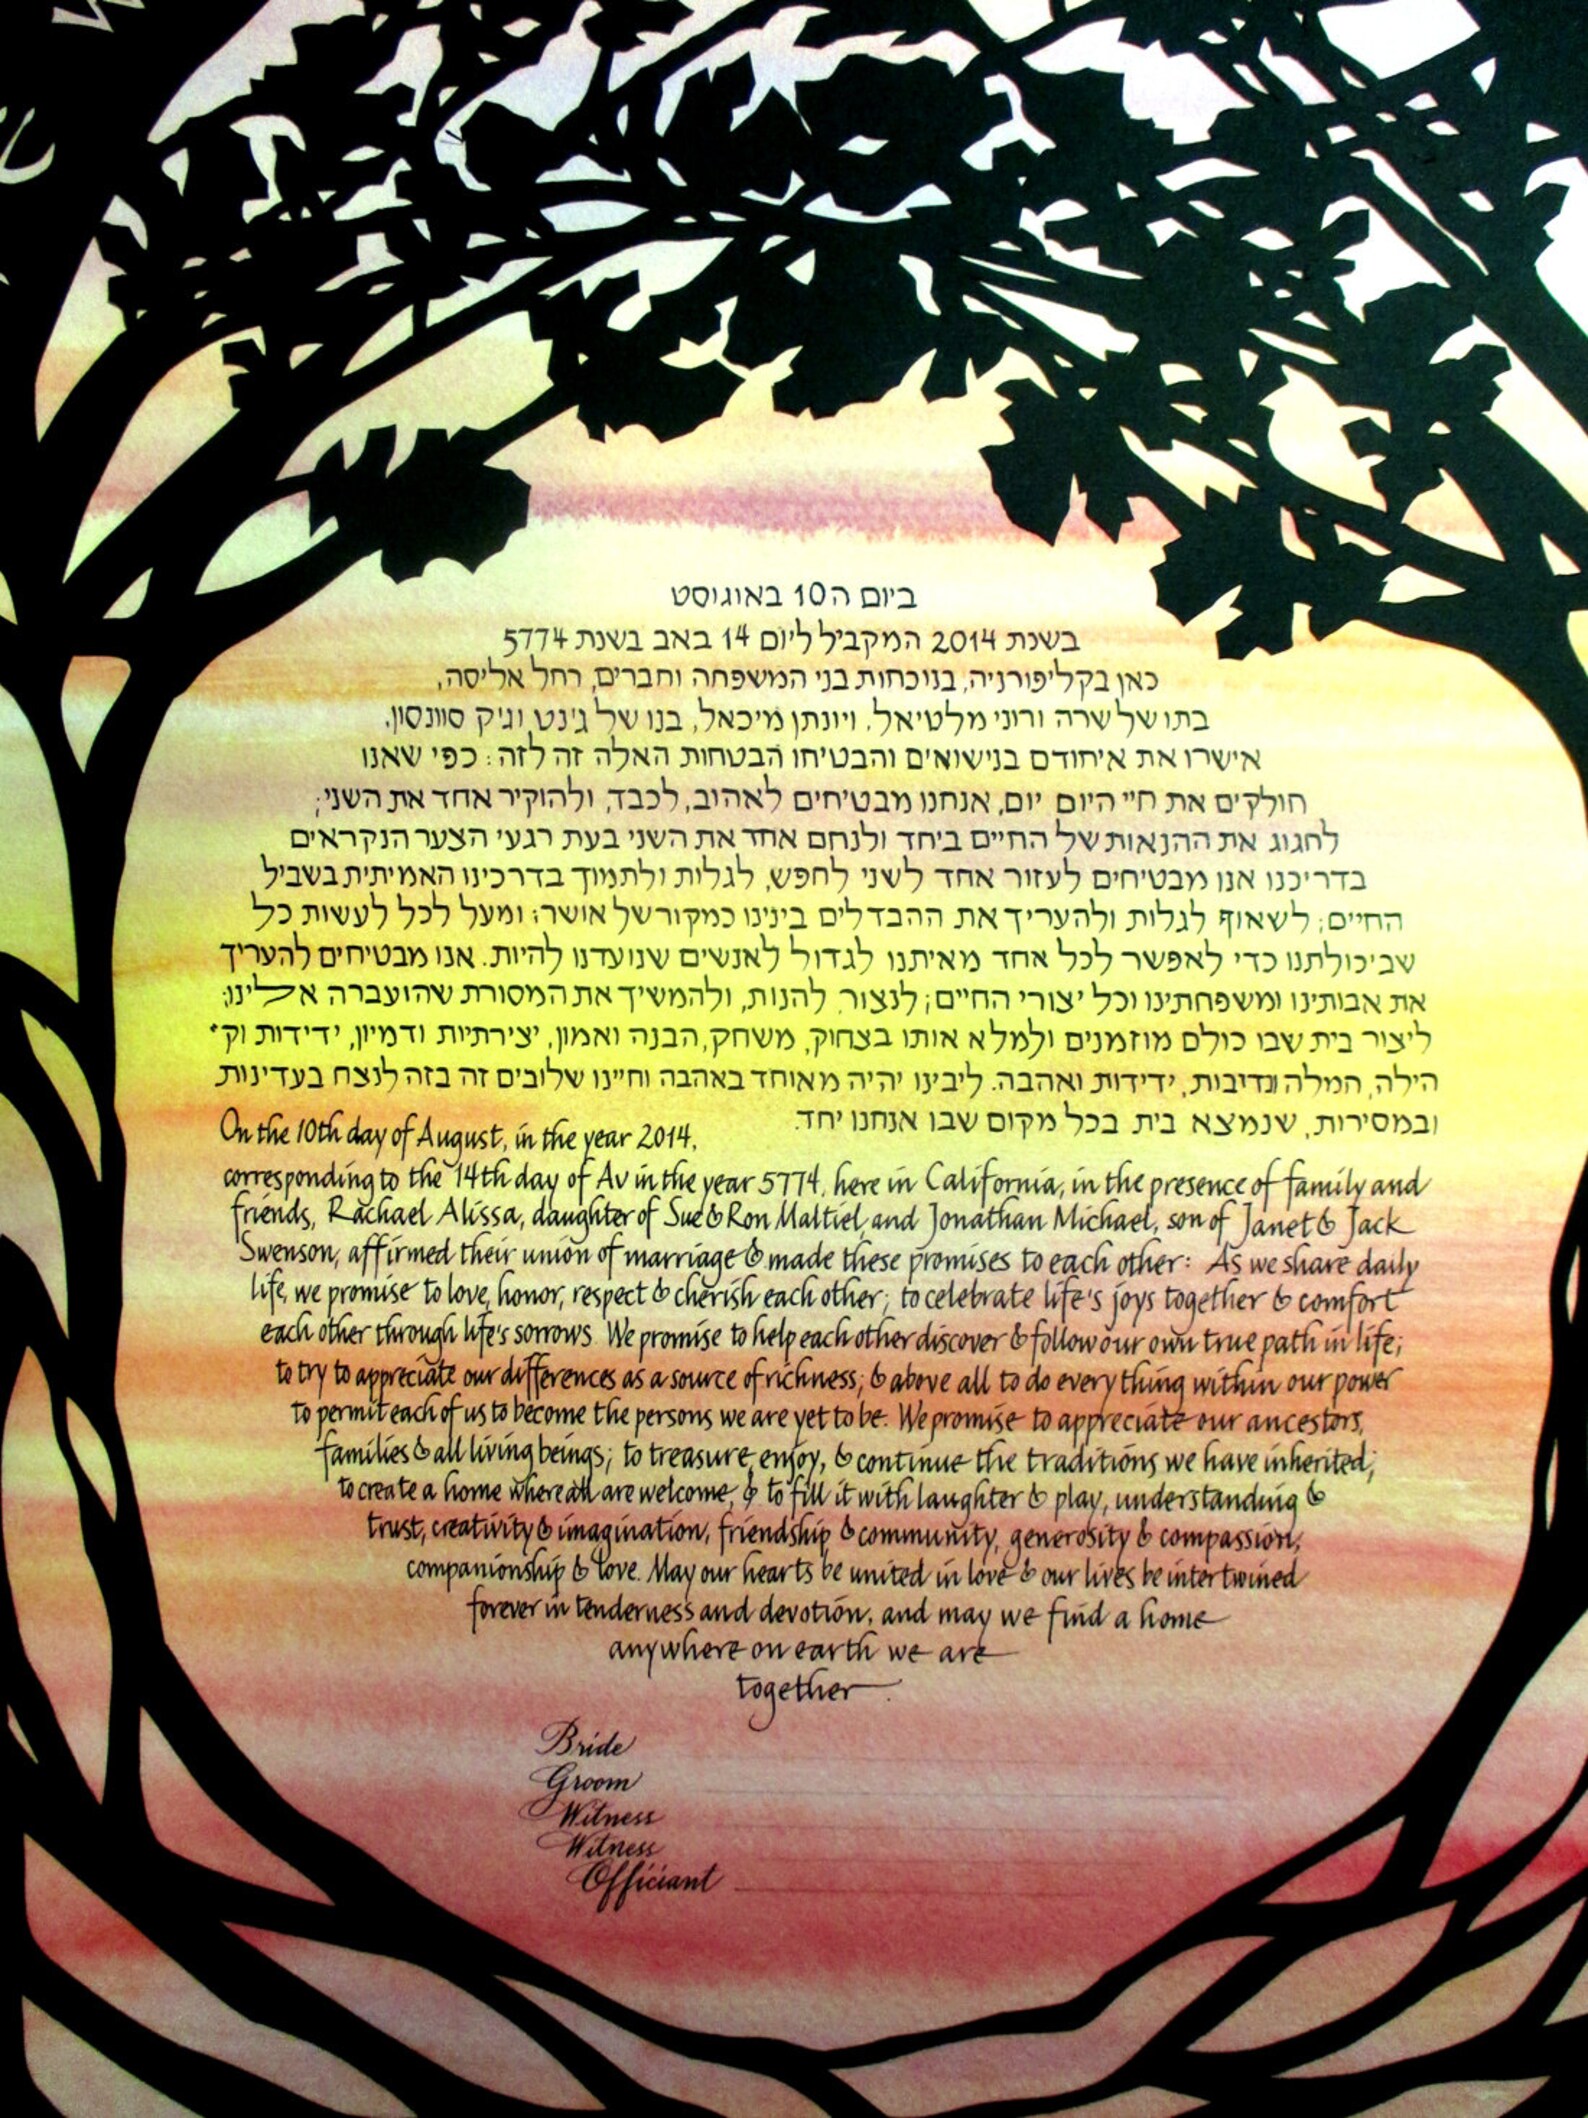 ביום ה10 באוגוסט
בשנת 2014 המקביל ליום 14 באב בשנת 5774
כאן בקליפורניה, בנוכחות בני המשפחה וחברים, רחל אליסה,
בתו של שרה ורוני מלטיאל, ויונתן מיכאל, בנו של ג'נט וג'ק סוונסון,
אישרו את איחודם בנישואים והבטיחו הבטחות האלה זה לזה: כפי שאנו
חולקים את חיי היום יום, אנחנו מבטיחים לאהוב, לכבד, ולהוקיר אחד את השני;
לחגוג את ההנאות של החיים ביחד ולנחם אחד את השני בעת רגעי הצער הנקראים
בדריכנו אנו מבטיחים לעזור אחד לשני לחפש, לגלות ולתמוך בדרכינו האמיתית בשביל
החיים; לשאוף לגלות ולהעריך את ההבדלים בינינו כמקור של אושר; ומעל לכל לעשות כל
שביכולתנו כדי לאפשר לכל אחד מאיתנו לגדול לאנשים שנועדנו להיות. אנו מבטיחים להעריך
את אבותינו ומשפחתינו וכל יצורי החיים; לנצור, להנות, ולהמשיך את המסורת שהועברה אלינו;
ליצור בית שבו כולם מוזמנים ולמלא אותו בצחוק, משחק, הבנה ואמון, יצירתיות ודמיון, ידידות וק-
הילה, חמלה ונדיבות, ידידות ואהבה. ליבינו יהיה מאוחד באהבה וחיינו שלובים זה בזה לנצח בעדינות
ובמסירות, שנמצא בית בכל מקום שבו אנחנו יחד.
On the 10th day of August, in the year 2014,
corresponding to the 14th day of Av in the year 5774, here in California, in the presence of family and
friends, Rachael Alissa, daughter of Sue & Ron Maltiel, and Jonathan Michael, son of Janet & Jack
Swenson, affirmed their union of marriage & made these promises to each other: As we share daily
life, we promise to love, honor, respect & cherish each other; to celebrate life's joys together & comfort
each other through life's sorrows. We promise to help each other discover & follow our own true path in life;
to try to appreciate our differences as a source of richness; & above all to do everything within our power
to permit each of us to become the persons we are yet to be. We promise to appreciate our ancestors,
families & all living beings; to treasure, enjoy, & continue the traditions we have inherited;
to create a home where all are welcome, & to fill it with laughter & play, understanding &
trust, creativity & imagination, friendship & community, generosity & compassion,
companionship & love. May our hearts be united in love & our lives be intertwined
forever in tenderness and devotion, and may we find a home
anywhere on earth we are
together.
Bride
Groom
Witness
Witness
Officiant